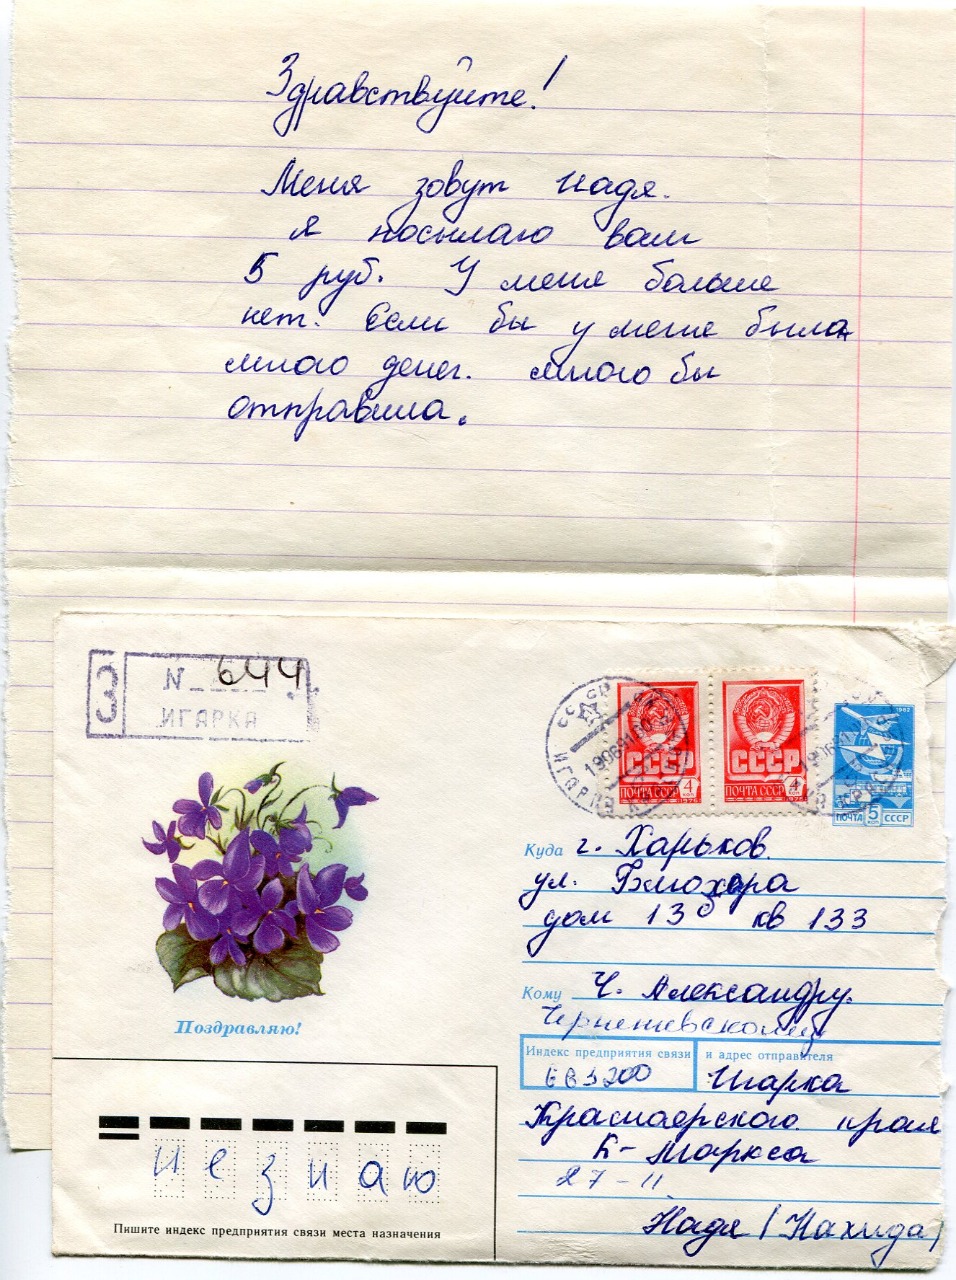 Здравствуйте!
Меня зовут Надя.
Я посылаю вам
5 руб. У меня больше
нет. Если бы у меня было
много денег. много бы
отправила.
З
N 644
ИГАРКА
СССР
ПОЧТА СССР 4 КОП
1976
СССР
ПОЧТА СССР 4 КОП
1976
1982
ПОЧТА 5 КОП СССР
Куда г. Харьков.
ул. Блюхера
дом 13 кв 133
Кому Ч. Александру.
Чернышевскому
Индекс предприятия связи и адрес отправителя
663200 Игарка
Красноярского края
К-Маркса
27-11
Надя (Нахида)
Поздравляю!
не знаю
Пишите индекс предприятия связи места назначения